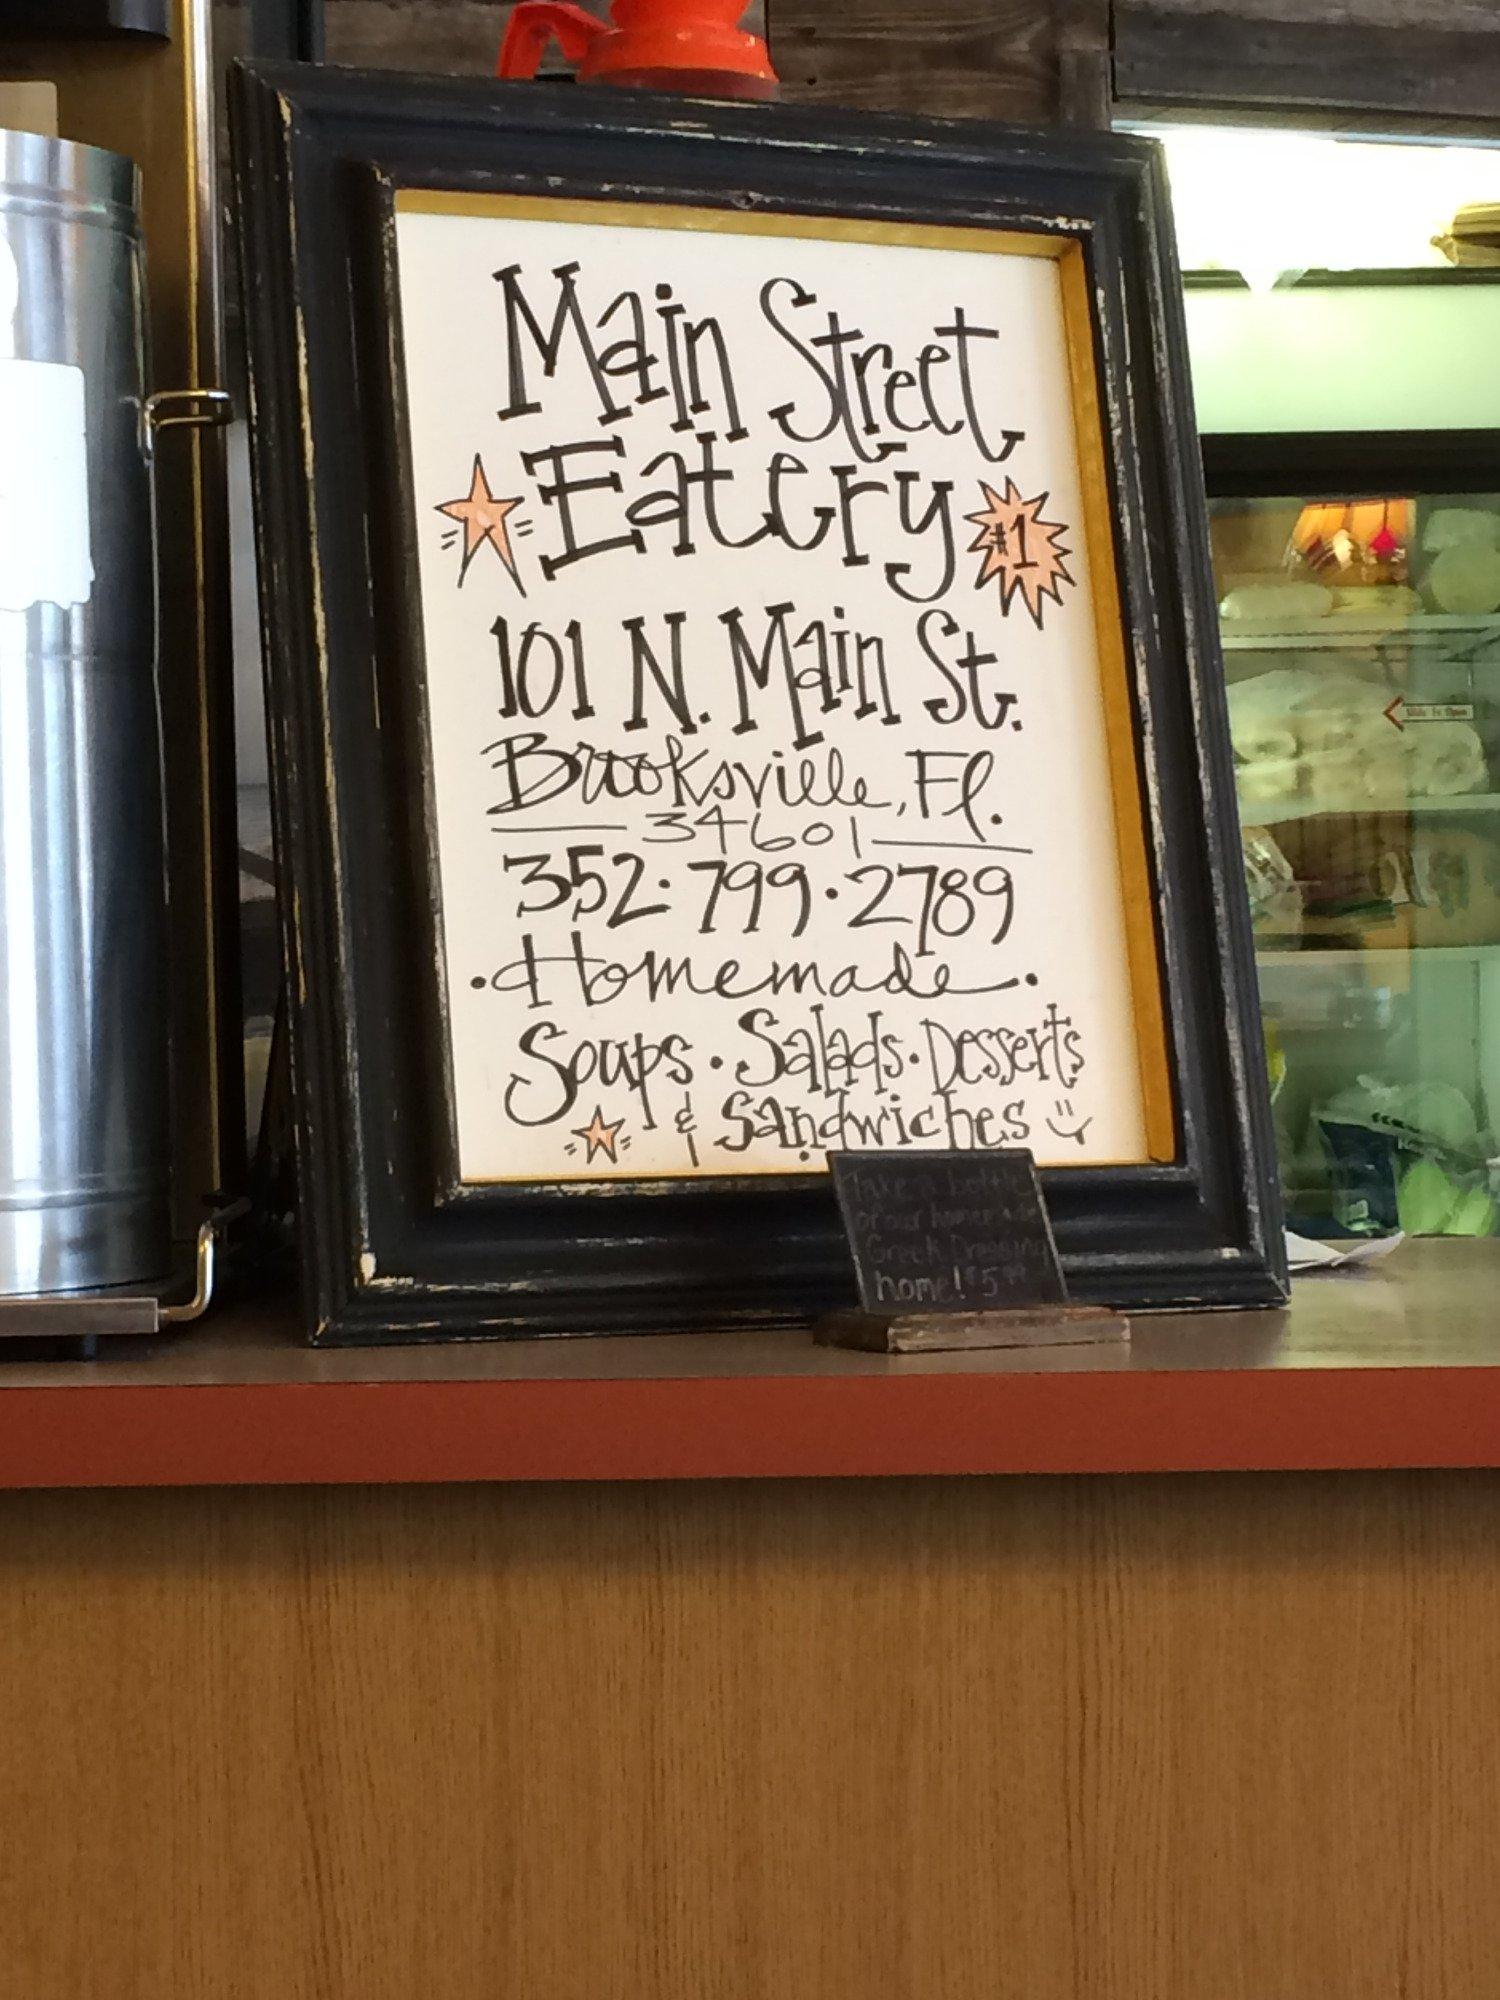 Main Street
Eatery
#1
101 N. Main St.
Brooksville, Fl.
34601
352·799·2789
·Homemade·
Soups · Salads · Desserts
& Sandwiches
Take a bottle
of our homemade
Greek Dressing
home! $5
Slide To Open